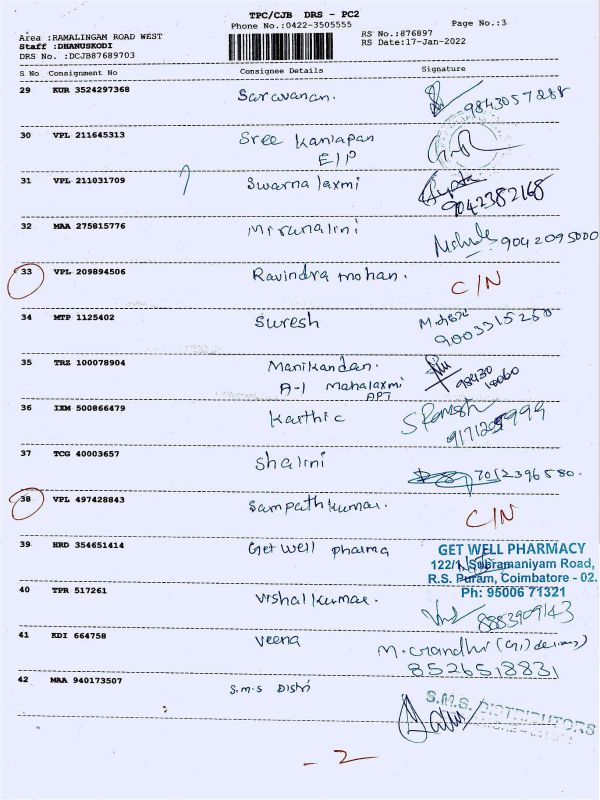 TPC/CJB DRS - PC2
Phone No.:0422-3505555
Page No.:3
Area :RAMALINGAM ROAD WEST
RS No.:876897
Staff :DHANUSKODI
RS Date:17-Jan-2022
DRS No. :DCJB87689703
S No Consignment No Consignee Details Signature
29 KUR 3524297368 Saravanan. 9843057288
30 VPL 211645313 Sree Kaniapan
E/P
31 VPL 211031709 Swarna laxmi
9042382168
32 MAA 275815776 Mirunalini 9042095000
33 VPL 209894506 Ravindra mohan. C/N
34 MTP 1125402 Suresh
9003315250
35 TRZ 100078904 Manikandan. 98430
A-1 Mahalaxmi 10060
APT
36 IXM 500866479 Karthic
37 TCG 40003657 Shalini 7012396580.
38 VPL 497428843 Sampathkumar. C/N
39 HRD 354651414 Get well pharma
GET WELL PHARMACY
122/1, Subramaniyam Road,
R.S. Puram, Coimbatore - 02.
Ph: 95006 71321
40 TPR 517261 Vishal kumar. 8883909143
41 KDI 664758 Veena M. Gandhi
8526518831
42 MAA 940173507 S.M.S Distri
S.M.S. DISTRIBUTORS
- 2